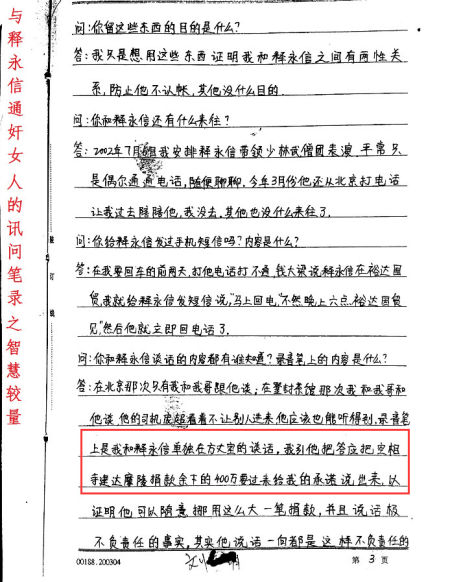 与释永信通奸女人的讯问笔录之智慧较量
问:你留这些东西的目的是什么?
答:我只是想用这些东西证明我和释永信之间有两性关
系,防止他不认帐,其他没什么目的.
问:你和释永信还有什么来往?
答:2002年7月 我安排释永信带领少林武僧团表演,平常只
是偶尔通通电话,随便聊聊,今年3月份他还从北京打电话
让我过去陪陪他,我没去,其他也没什么来往了.
问:你给释永信发过手机短信吗?内容是什么?
答:在我要回车的前两天,打他电话打不通,钱大梁说释永信在裕达国
贸,我就给释永信发短信说,"马上回电,不然晚上六点裕达国贸
见",然后他就立即回电话了.
问:你和释永信谈话的内容都有谁知道?录音笔上的内容是什么?
答:在北京那次只有我和我哥跟他谈;在登封茶馆那次我和我哥和
他谈,他的司机 超看着不让别人进来,他应该也能听得到,录音笔
上是我和释永信单独在方丈室的谈话,我引他把答应把空相
寺建达摩陵捐款余下的400万要过来给我的承诺说出来,以
证明他可以随意挪用这么大一笔捐款,并且说话极
不负责任的事实,其实他说话一向都是这样不负责任的
00188.200304
第 3 页
装
订
线